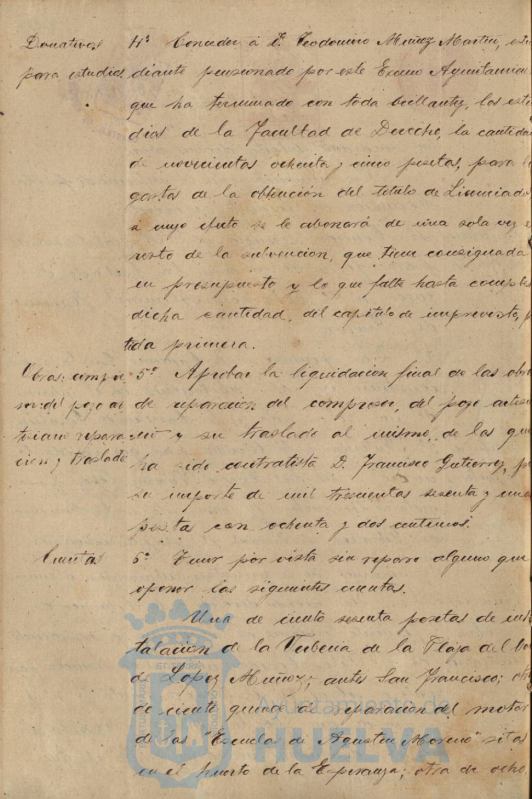 Donativos
para estudios
4º Conceder á D. Teodomiro Muñoz Martín, estu
diante pensionado por este Excmo Ayuntamien
que ha terminado con toda brillantez, los estu
dios de la Facultad de Derecho, la cantidad
de novecientas ochenta y cinco pesetas, para
gastos de la obtención del titulo de Licenciado
a cuyo efecto se le abonará de una sola vez el
resto de la subvencion, que tiene consignada
en presupuesto y lo que falte hasta comple
dicha cantidad, del capitulo de imprevistos, par
tida primera.
Obras: compre
sor del pozo ar
tesiano repara
cion y traslado
5º Aprobar la liquidacion final de las obra
de reparacion del compresor, del pozo artesi
y su traslado al mismo, de las que
ha sido contratista D. Francisco Gutierrez, p
su importe de mil trescientas sesenta y una
pesetas con ochenta y dos centimos.
Cuentas
6º Tener por vista sin reparo alguno que
oponer las siguientes cuentas.
Una de ciento sesenta pesetas de ins
talacion de la Verbena de la Plaza del
de Lopez Muñoz; antes San Francisco; otra
de ciento quince á reparacion del motor
de las "Escuelas de Agustin Moreno" sitas
en el huerto de la Esperanza; otra de ocho
Ayuntamiento de
HUELVA